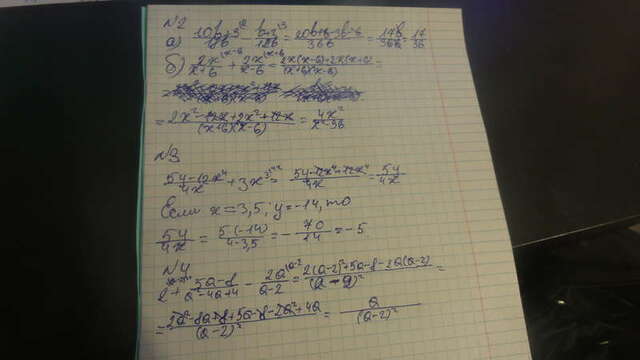 №2
а) (10b+3)/18b - (b+2)/12b = (20b+6-3b-6)/36b = 17b/36b = 17/36
б) 2x/(x+6) + 2x/(x-6) = (2x(x-6)+2x(x+6))/((x+6)(x-6)) =
= (2x²-12x+2x²+12x)/((x+6)(x-6)) = 4x²/(x²-36)
№3
(5y-12x⁴)/4x + 3x³ = (5y-12x⁴+12x⁴)/4x = 5y/4x
Если x=3,5; y=-14, то
5y/4x = 5·(-14)/4·3,5 = -70/14 = -5
№4
2 + (5a-8)/(a²-4a+4) - 2a/(a-2) = (2(a-2)²+5a-8-2a(a-2))/(a-2)² =
= (2a²-8a+8+5a-8-2a²+4a)/(a-2)² = a/(a-2)²